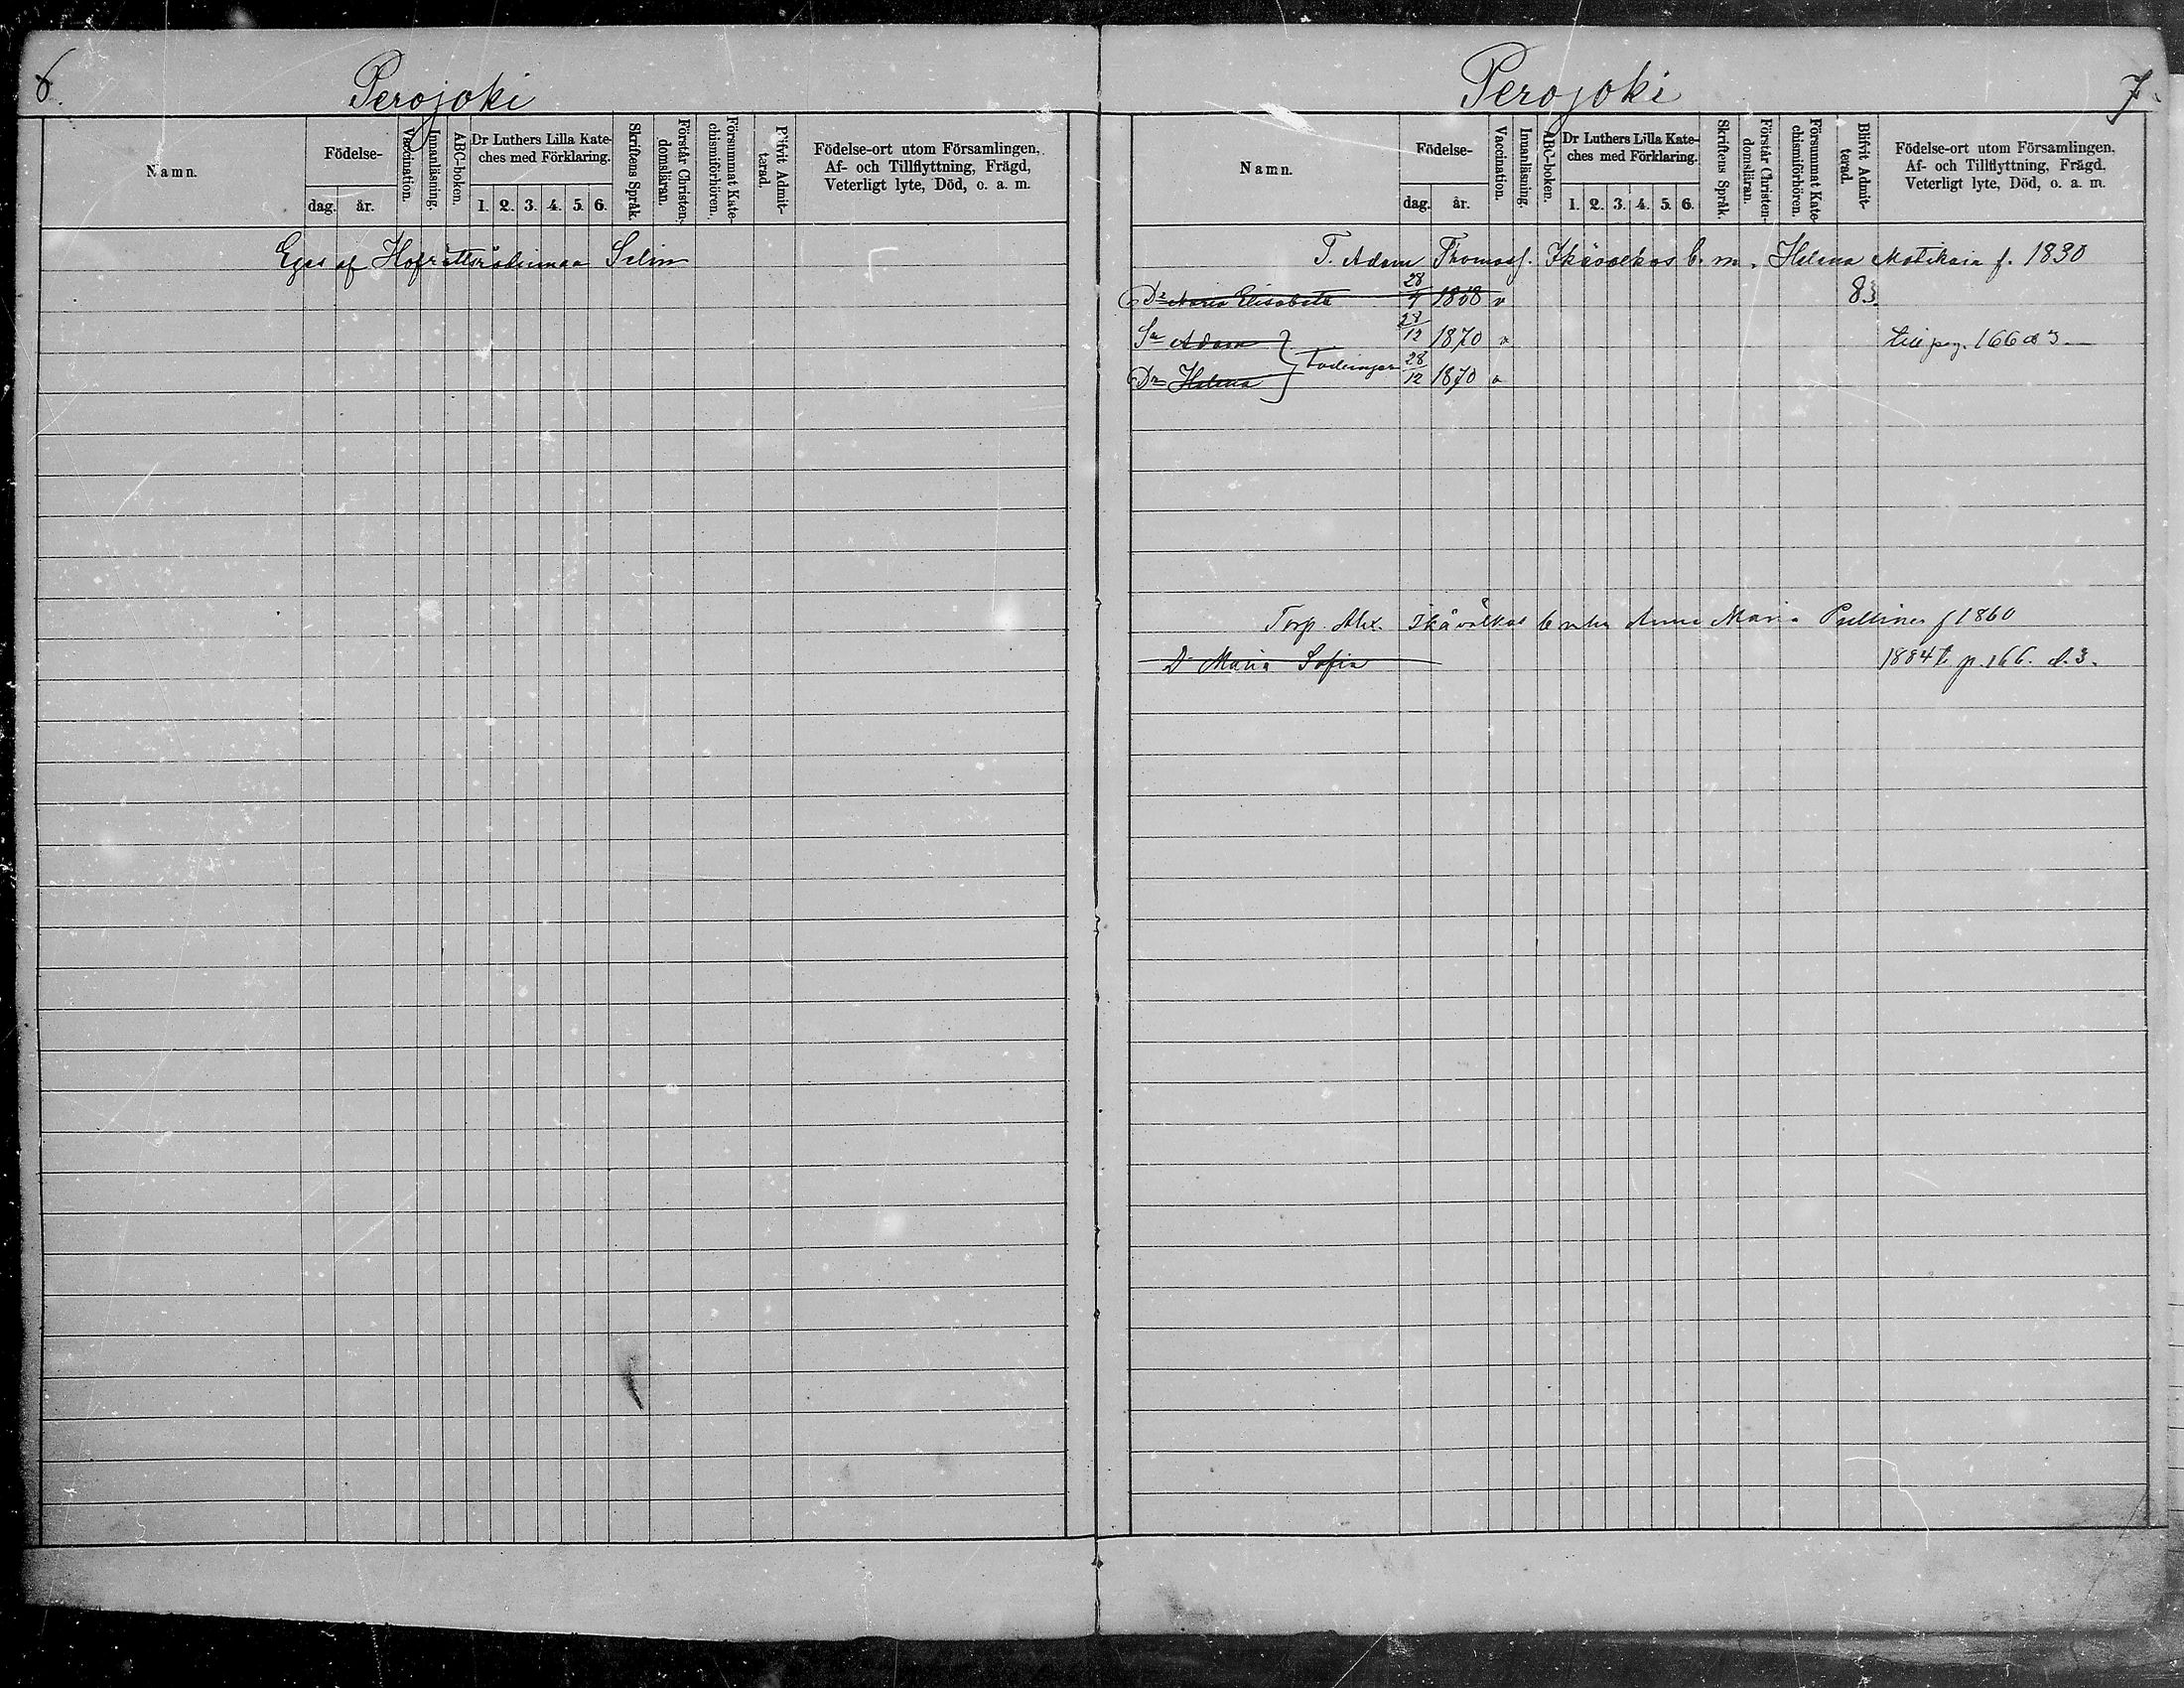 6.
Perojoki
Namn.
Födelse-
dag. år.
Vaccination.
Innanläsning.
ABC-boken.
Dr Luthers Lilla Kate-
ches med Förklaring.
1. 2. 3. 4. 5. 6.
Skriftens Språk.
Förstår Christen-
domsläran.
Försummat Kate-
chismiförhören.
Blifvit Admit-
terad.
Födelse-ort utom Församlingen,
Af- och Tillflyttning, Frägd,
Veterligt lyte, Död, o. a. m.
Eges af Hofrättsrådinnan Selin
Perojoki
7.
Namn.
Födelse-
dag. år.
Vaccination.
Innanläsning.
ABC-boken.
Dr Luthers Lilla Kate-
ches med Förklaring.
1. 2. 3. 4. 5. 6.
Skriftens Språk.
Förstår Christen-
domsläran.
Försummat Kate-
chismiförhören.
Blifvit Admit-
terad.
Födelse-ort utom Församlingen,
Af- och Tillflyttning, Frägd,
Veterligt lyte, Död, o. a. m.
T. Adam Thomass. Ikävalkos b. m. Helena Matikain f. 1830
Dr Maria Elisabeta 28/4 18 8 v 83
Sn Adam 28/12 1870 v till pag. 166 d 3
Dr Helena Tvillingar 28/12 1870 v
Torp. Alex. Ikävalkos b m h Anna Maria f 1860
Dr Maria Sofia 1884 t. p. 166. d. 3.